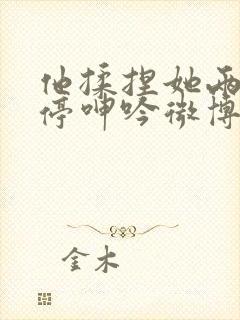 他揉捏她两
停呻吟微博
金木